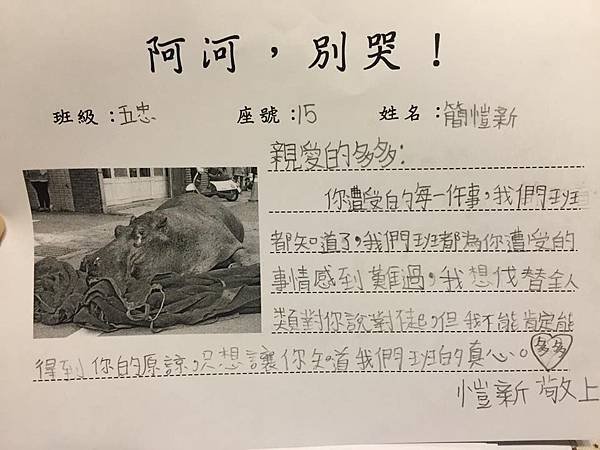 阿河，別哭！
班級：五忠 座號：15 姓名：簡愷新
親愛的多多：
你遭受的每一件事，我們班
都知道了，我們班都為你遭受的
事情感到難過，我想代替全人
類對你說對不起，但我不能肯定能
得到你的原諒，只想讓你知道我們班的真心。多多
愷新 敬上